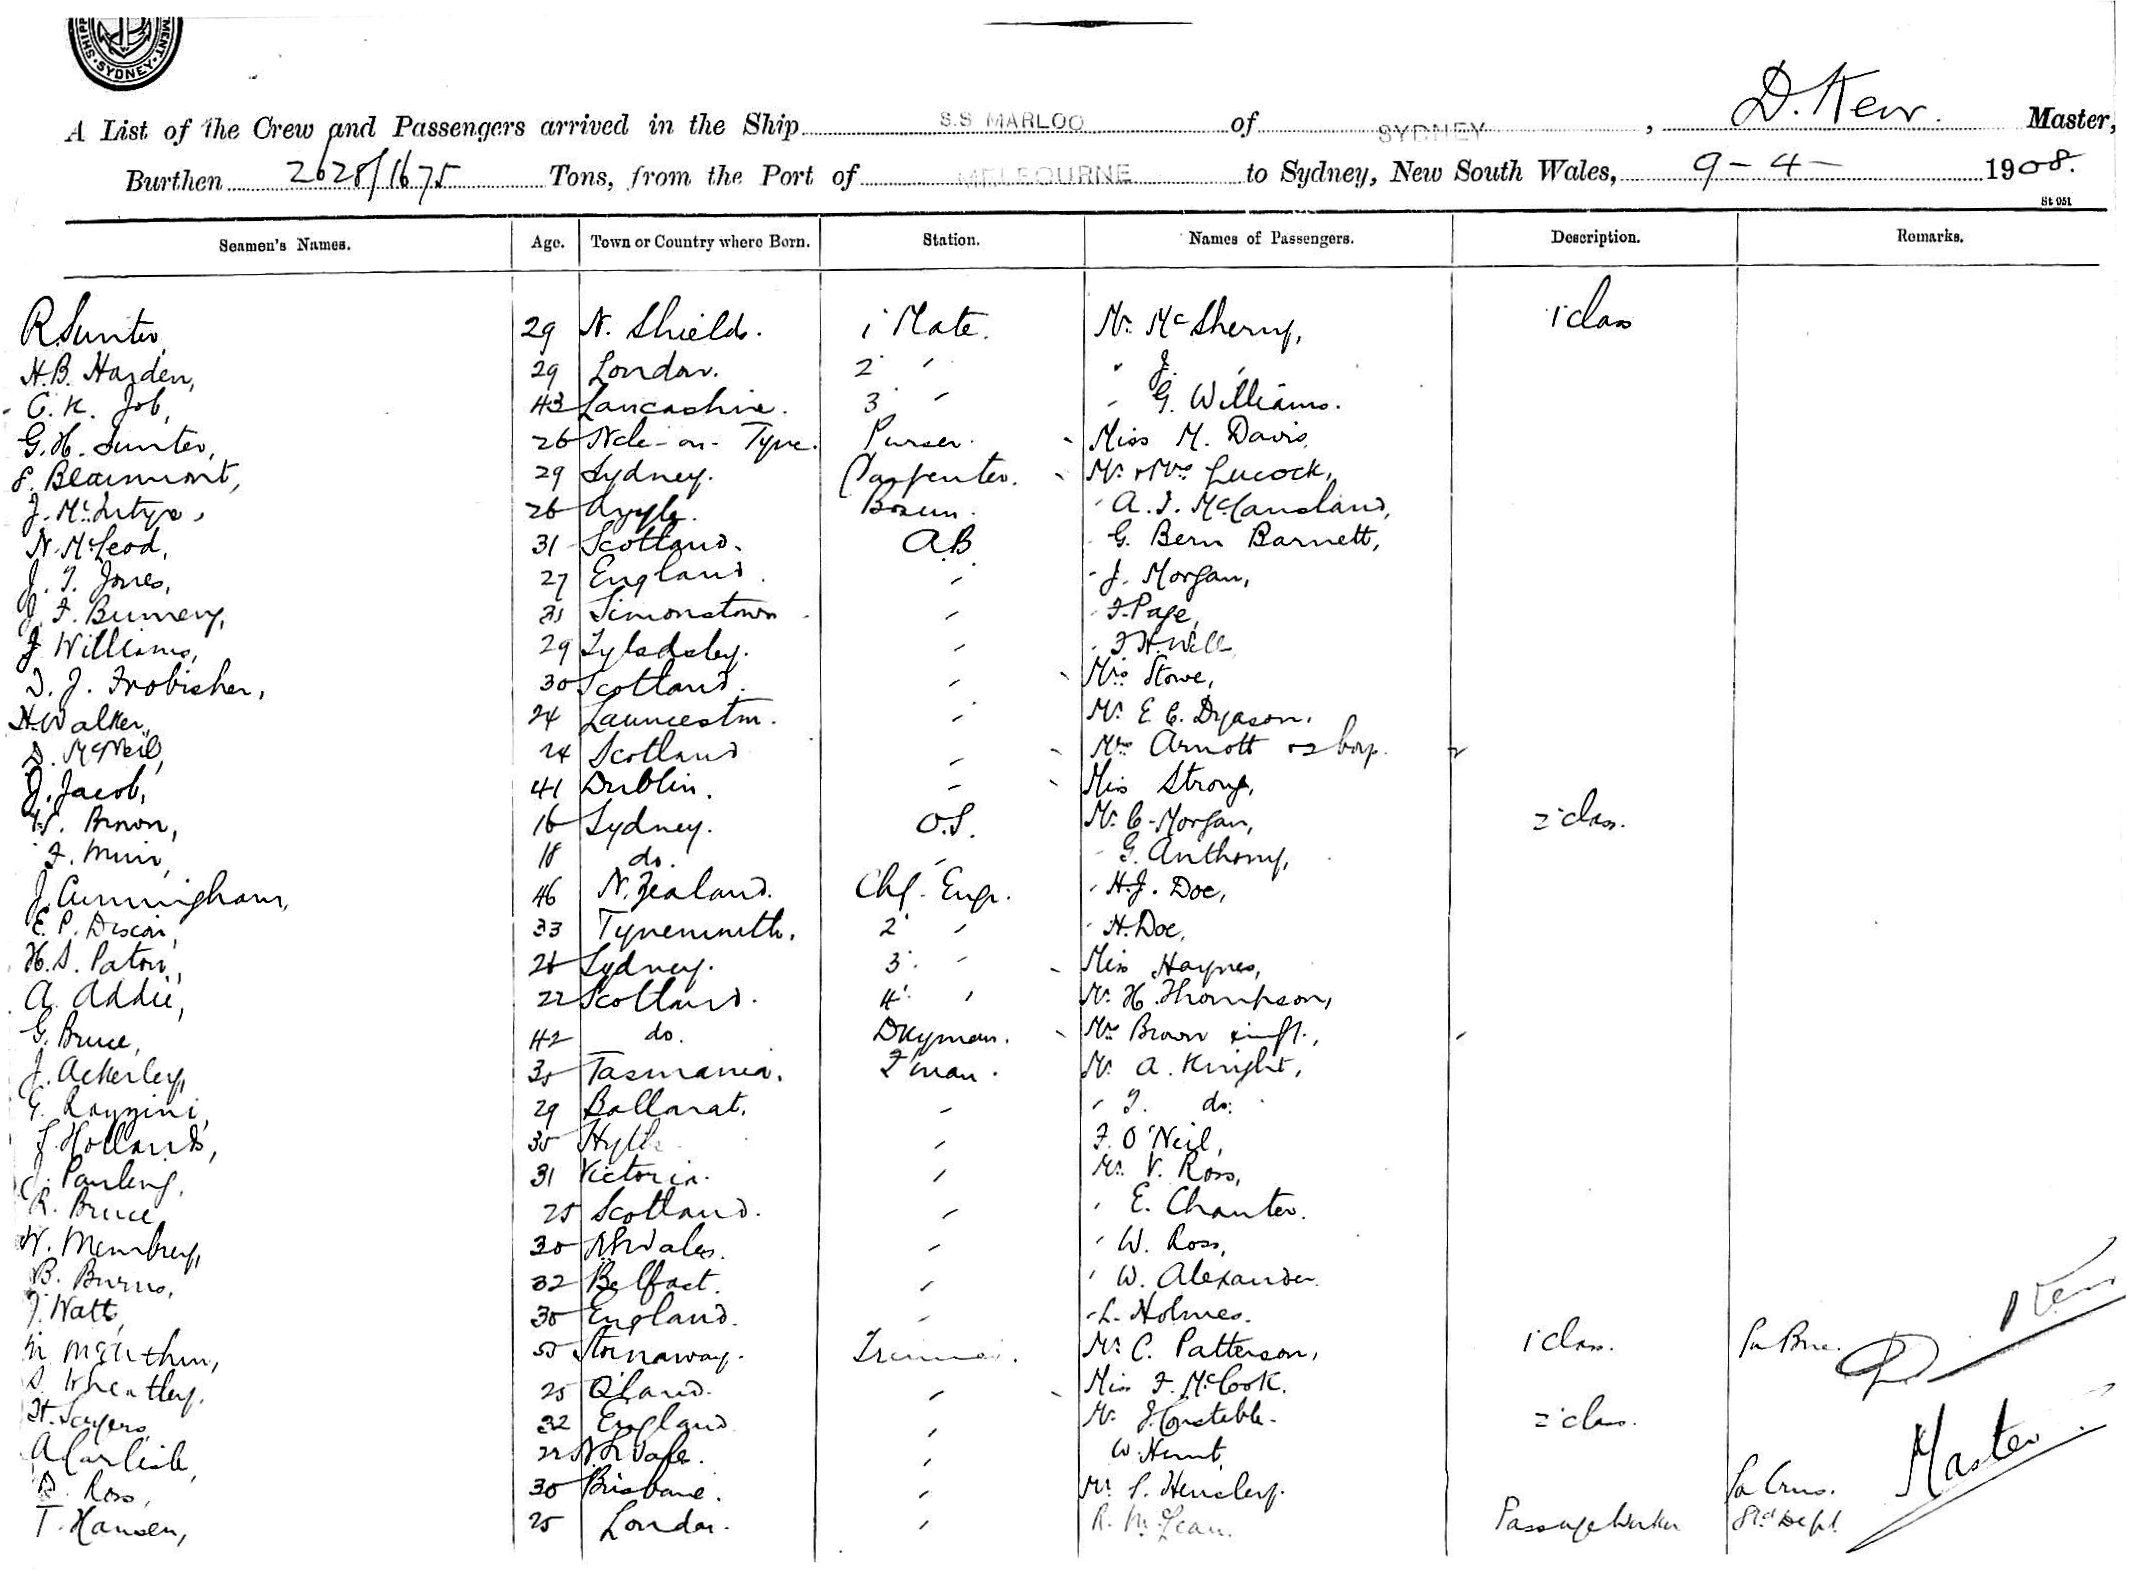 SHIP MENT · SYDNEY ·
A List of the Crew and Passengers arrived in the Ship S.S MARLOO of SYDNEY, D. Kerr. Master,
Burthen 2628/1675 Tons, from the Port of MELBOURNE to Sydney, New South Wales, 9 - 4 - 1908.
St 051
Seamen's Names. Age. Town or Country where Born. Station. Names of Passengers. Description. Remarks.
R Sunter, 29 N. Shields. 1 Mate. Mr. McSherry, 1 class
H.B. Harden, 29 London. 2 " " J. "
C. K. Job, 43 Lancashire. 3 " " G. Williams.
G. H. Sunter, 26 Ncle-on-Tyne. Purser. Miss M. Davis,
S. Beaumont, 29 Sydney. Carpenter. Mr. & Mrs Lucock,
J. McIntyre, 26 Argyle. Bosun. " A. J. McCausland,
N. McLeod, 31 Scotland. A.B. " G. Bern Barnett,
J. T. Jones, 27 England. " " J. Morgan,
J. F. Bumery, 31 Simonstown. " " F. Page,
J Williams, 29 Tyldsley. " " F. H. Will
J. Frobisher, 30 Scotland. " Mrs Stowe,
H Walker, 24 Launceston. " Mr. E. C. Dyason,
D. McNeil, 24 Scotland " Mrs Arnott & 2 boys.
J. Jacob, 41 Dublin. " Miss Strong,
W. Brown, 16 Sydney. O.S. Mr. C. Morgan, 2 class.
F. Muir, 18 do. " " G. Anthony,
J. Cunningham, 46 N. Zealand. Chf. Engr. " H. J. Doe,
E. P. 33 Tynemouth. 2 " " H. Doe,
H. S. Paton, 26 Sydney. 3 " Miss Haynes,
A. Addie, 22 Scotland. 4 " Mr. H. Thompson,
G. Bruce, 42 do. Dkyman. Mrs Brown & inft.,
J. Ackerley, 35 Tasmania. F'man. Mr. A. Knight,
G. 29 Ballarat. " " J. do.
Hollands, 35 Hythe " F. O'Neil,
J. Pauling, 31 Victoria. " Mr. V. Ross,
R. Bruce, 25 Scotland. " " E. Chanter.
W. Membrey, 30 N.S. Wales. " " W. Ross,
B. Burns, 32 Belfast. " " W. Alexander.
J. Watts, 30 England. " " L. Holmes.
McArthur, 50 Stornaway. Trimmer. Mr. C. Patterson, 1 class.
Wheatley, 25 Q'land. " Miss F. McCook.
H. Sayers, 32 England " Mr. J. Constable. 2 class.
A Carlisle, 22 N.S. Wales. " W. Hunt,
Ross, 30 Brisbane. " Mr. S. Hensley.
T. Hansen, 25 London. " R. McLean. Passage Worker
D Kerr
Master